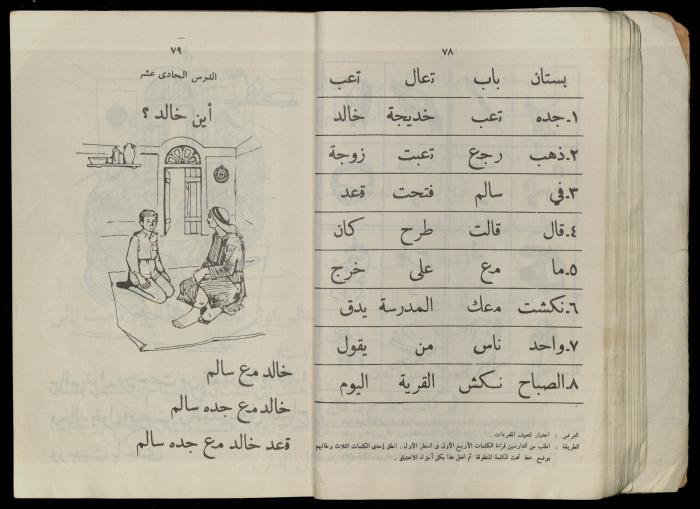 ٧٨
بستان باب تعال تعب
١- جده تعب خديجة خالد
٢- ذهب رجع تعبت زوجة
٣- في سالم فتحت قعد
٤- قال قالت طرح كان
٥- ما مع على خرج
٦- نكشت معك المدرسة يدق
٧- واحد ناس من يقول
٨- الصباح نكش القرية اليوم
الغرض : اختبار لتعرف المفردات .
الطريقة : اطلب من الدارسين قراءة الكلمات الأربع الأولى في السطر الأول . انطق إحدى الكلمات الثلاث وطالبهم
بوضع خط تحت الكلمة المنطوقة ثم افعل هذا بكل أجزاء الاختبار .
٧٩
الدرس الحادى عشر
أين خالد ؟
خالد مع سالم
خالد مع جده سالم
قعد خالد مع جده سالم